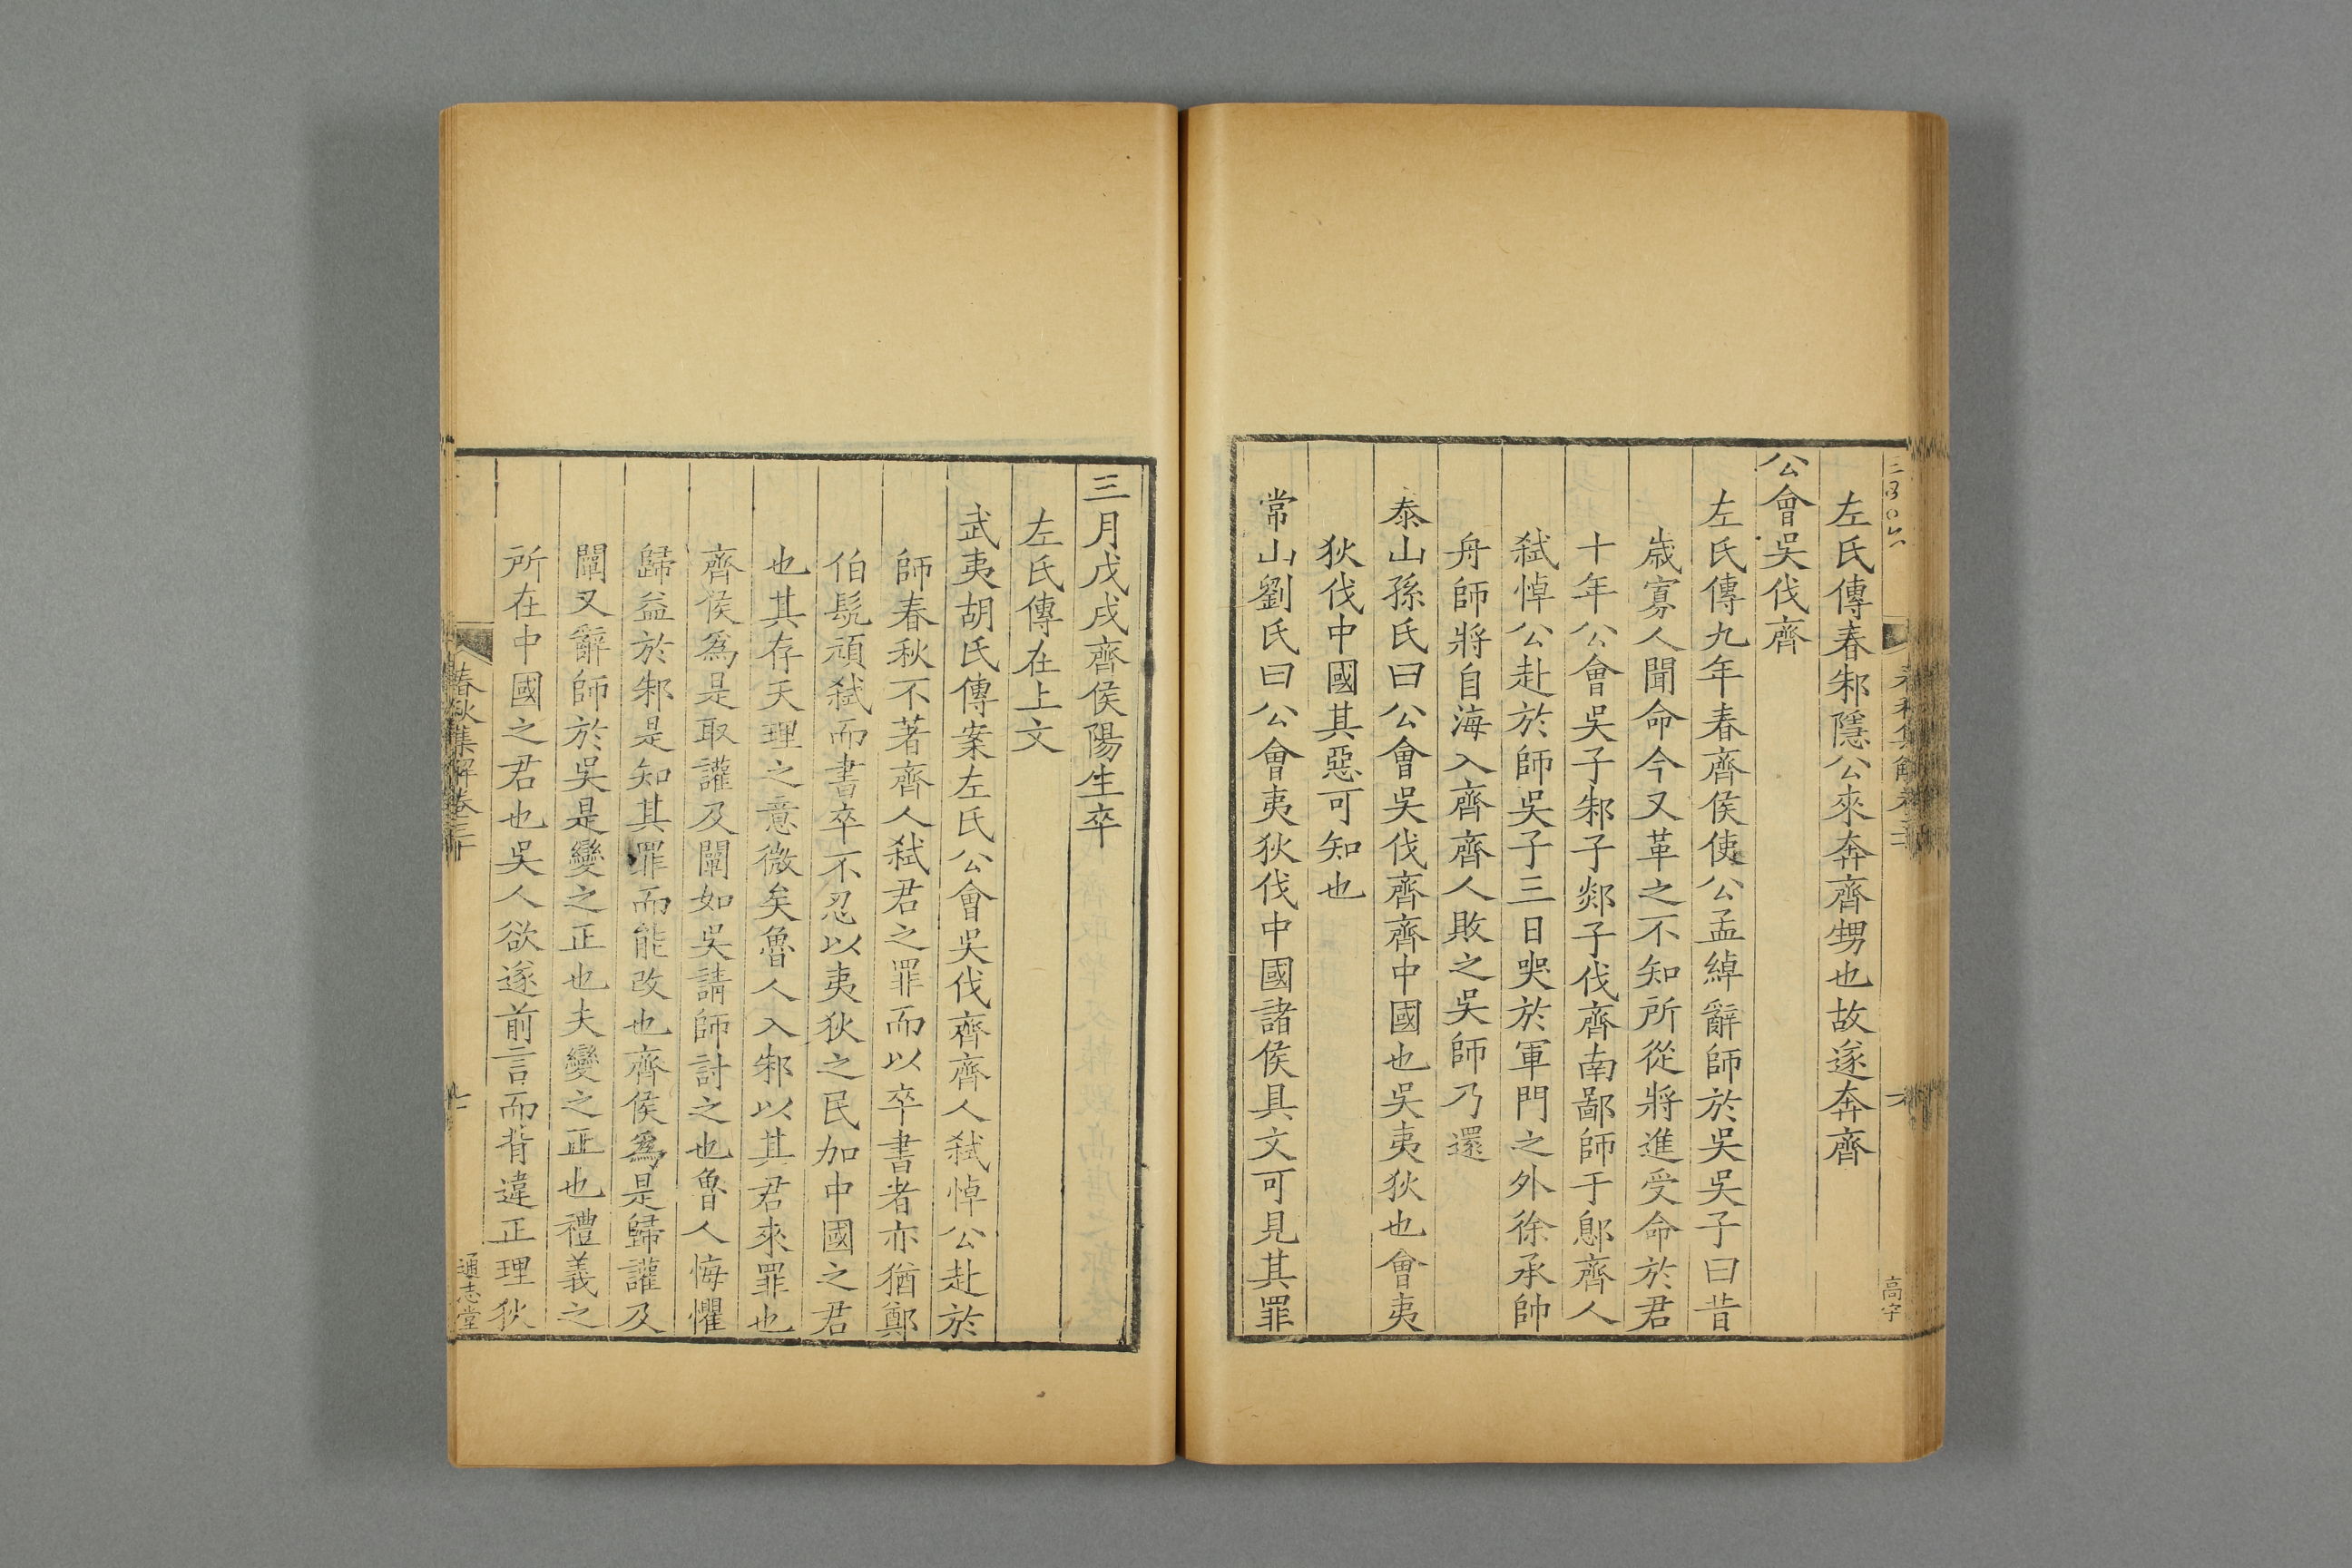 左氏傳春邾隱公來奔齊甥也故遂奔齊
公會吳伐齊
左氏傳九年春齊侯使公孟綽辭師於吳吳子曰昔
歳寡人聞命今又革之不知所從將進受命於君
十年公會吳子邾子郯子伐齊南鄙師于鄎齊人
弑悼公赴於師吳子三日哭於軍門之外徐承帥
舟師將自海入齊齊人敗之吳師乃還
泰山孫氏曰公會吳伐齊齊中國也吳夷狄也會夷
狄伐中國其惡可知也
常山劉氏曰公會夷狄伐中國諸侯具文可見其罪
高宇
三月戊戌齊侯陽生卒
左氏傳在上文
武夷胡氏傳案左氏公會吳伐齊齊人弑悼公赴於
師春秋不著齊人弑君之罪而以卒書者亦猶鄭
伯髡頑弑而書卒不忍以夷狄之民加中國之君
也其存天理之意微矣魯人入邾以其君來罪也
齊侯爲是取讙及闡如吳請師討之也魯人悔懼
歸益於邾是知其罪而能改也齊侯爲是歸讙及
闡又辭師於吳是變之正也夫變之正也禮義之
所在中國之君也吳人欲遂前言而背違正理狄
春秋集解卷三十
通志堂